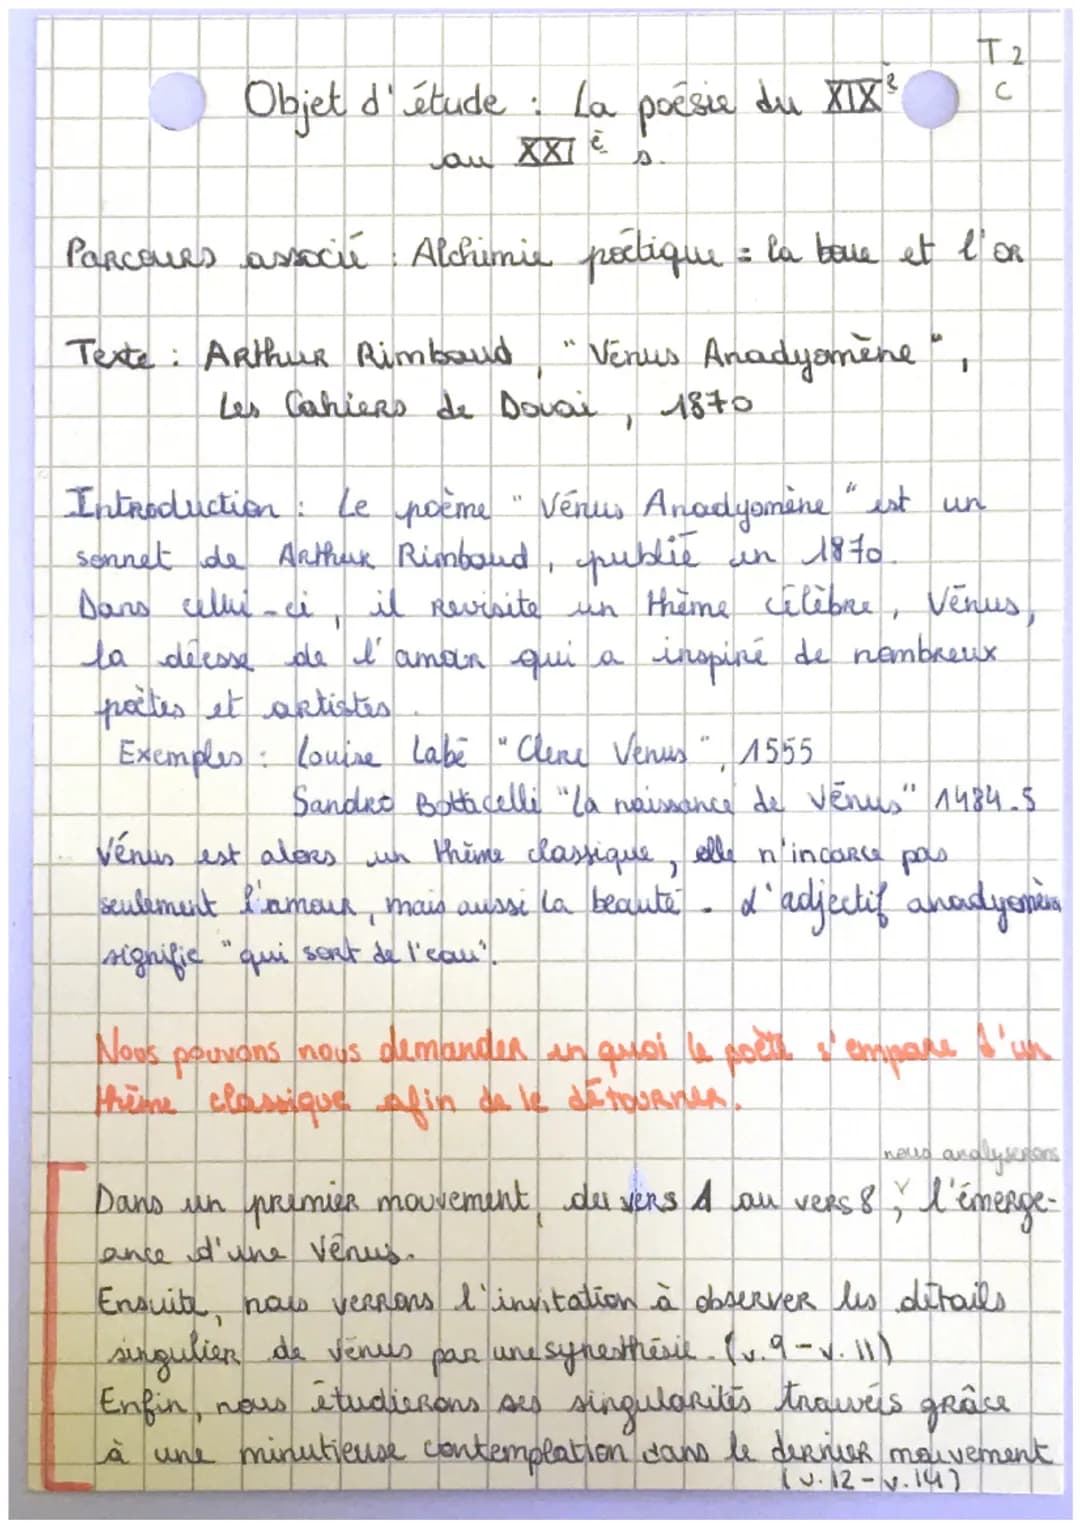 T2
C
Objet d'étude : La poésie du XIXè
au XXIè s.
Parcours associé : Alchimie poétique = la boue et l'or
Texte : Arthur Rimbaud, "Vénus Anadyomène",
Les Cahiers de Douai, 1870
Introduction : Le poème "Vénus Anadyomène" est un
sonnet de Arthur Rimbaud, publié en 1870.
Dans cellui-ci, il revisite un thème célèbre, Vénus,
la déesse de l'amour qui a inspiré de nombreux
poètes et artistes.
Exemples : Louise Labé "Clere Venus", 1555
Sandro Botticelli "La naissance de Vénus" 1484-5
Vénus est alors un thème classique, elle n'incarce pas
seulement l'amour, mais aussi la beauté. L'adjectif anadyomène
signifie "qui sort de l'eau".
Nous pouvons nous demander en quoi le poète s'empare d'un
thème classique afin de le détourner.
nous analyserons
Dans un premier mouvement, du vers 1 au vers 8, l'émerge-
ance d'une Vénus.
Ensuite, nous verrons l'invitation à observer les détails
singulier de Vénus par une synesthésie. (v.9-v.11)
Enfin, nous étudierons ses singularités trouvés grâce
à une minutieuse contemplation dans le dernier mouvement
(v.12-v.14)